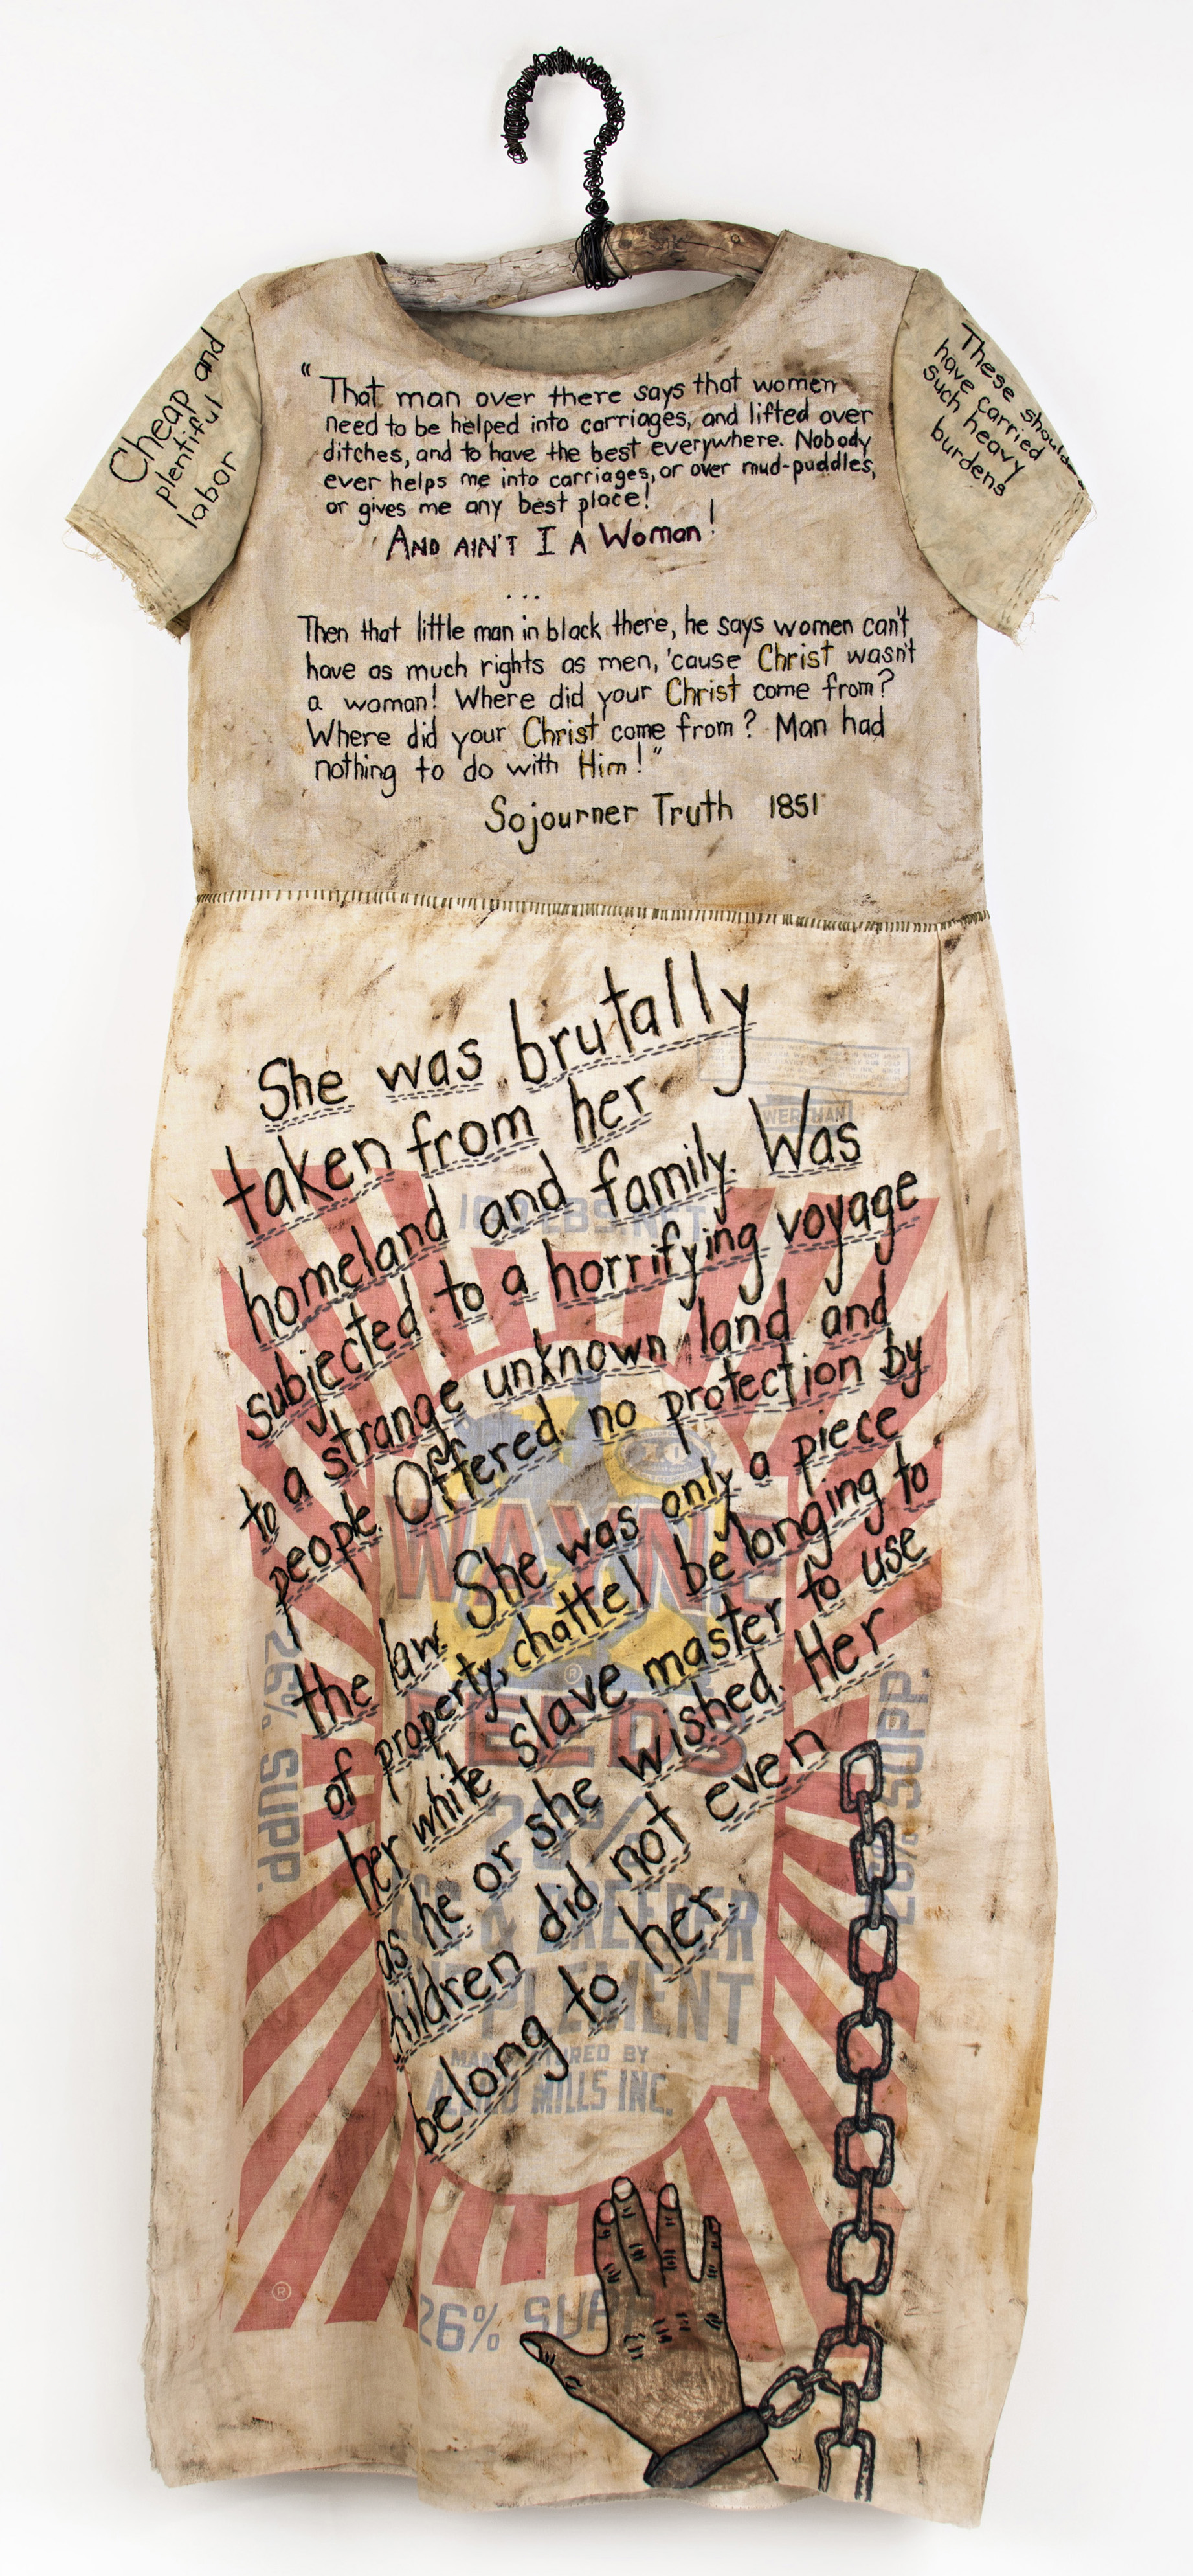 Cheap and
plentiful
labor
These should
have carried
such heavy
burdens
“ That man over there says that women
need to be helped into carriages, and lifted over
ditches, and to have the best everywhere. Nobody
ever helps me into carriages, or over mud-puddles,
or gives me any best place!
AND AIN'T I A Woman!
...
Then that little man in black there, he says women can't
have as much rights as men, 'cause Christ wasn't
a woman! Where did your Christ come from?
Where did your Christ come from? Man had
nothing to do with Him!”
Sojourner Truth 1851
She was brutally
taken from her
homeland and family. Was
subjected to a horrifying voyage
to a strange unknown land and
people. Offered no protection by
the law. She was only a piece
of property, chattel belonging to
her white slave master to use
as he or she wished. Her
hildren did not even
belong to her.
100 LBS. NET
WAYNE
FEEDS
26%
& BREEDER
MANUFACTURED BY
ALLIED MILLS INC.
26% SUPP.
26% SUPP.
26% SUPP.
®
®